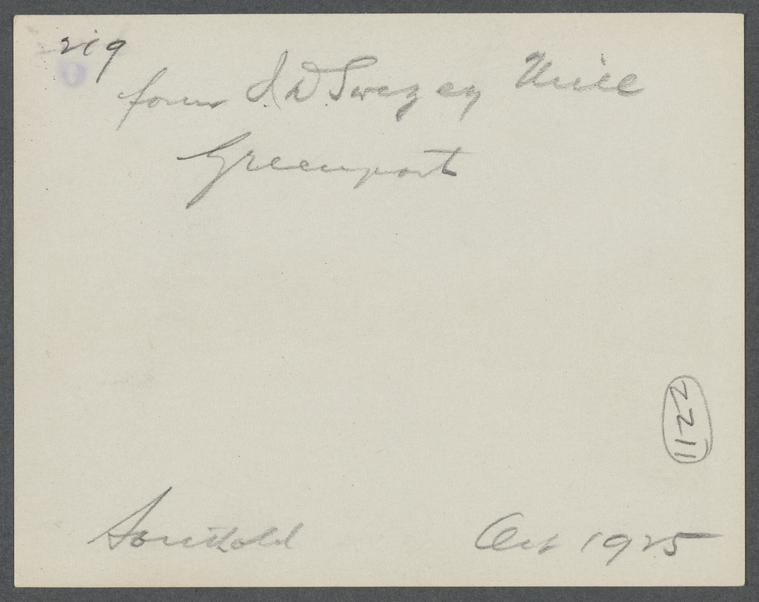 219
from S. D. Swezey Mill
Greenport
2211
Southold Oct 1925